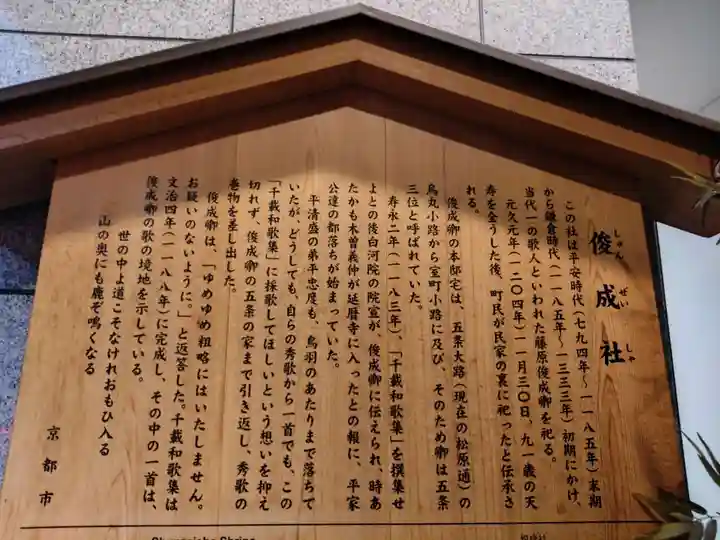 俊成社
しゅん ぜい しゃ
この社は平安時代（七九四年～一一八五年）末期
から鎌倉時代（一一八五年～一三三三年）初期にかけ、
当代一の歌人といわれた藤原俊成卿を祀る。
元久元年（一二〇四年）一一月三〇日、九一歳の天
寿を全うした後、町民が民家の裏に祀ったと伝承さ
れる。
俊成卿の本邸宅は、五条大路（現在の松原通）の
烏丸小路から室町小路に及び、そのため卿は五条
三位と呼ばれていた。
寿永二年（一一八三年）、「千載和歌集」を撰集せ
よとの後白河院の院宣が、俊成卿に伝えられ、時あ
たかも木曽義仲が延暦寺に入ったとの報に、平家
公達の都落ちが始まっていた。
平清盛の弟平忠度も、鳥羽のあたりまで落ちて
いたが、どうしても、自らの秀歌から一首でも、この
「千載和歌集」に採歌してほしいという想いを抑え
切れず、俊成卿の五条の家まで引き返し、秀歌の
巻物を差し出した。
俊成卿は、「ゆめゆめ粗略にはいたしません。
お疑いのないように。」と返答した。千載和歌集は
文治四年（一一八八年）に完成し、その中の一首は、
俊成卿の歌の境地を示している。
世の中よ道こそなけれおもひ入る
山の奥にも鹿ぞ鳴くなる
京都市